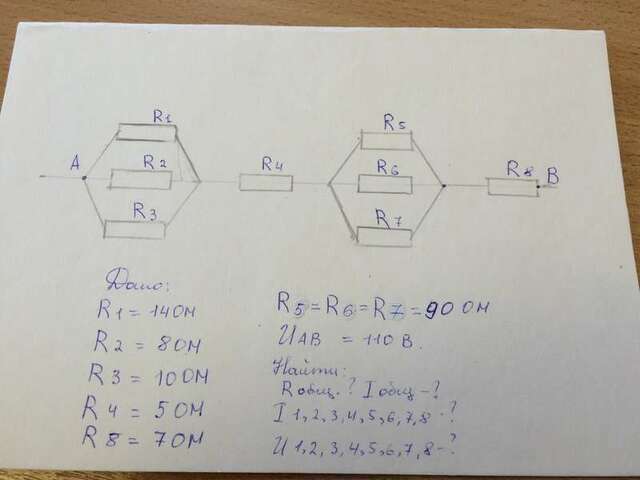 R1
R5
A
R2
R4
R6
R8
B
R3
R7
Дано:
R1 = 14 ОМ
R2 = 8 ОМ
R3 = 10 ОМ
R4 = 5 ОМ
R8 = 7 ОМ
R5 = R6 = R7 = 90 ОМ
UАВ = 110 В.
Найти:
R общ. ? I общ - ?
I 1,2,3,4,5,6,7,8 - ?
U 1,2,3,4,5,6,7,8 - ?